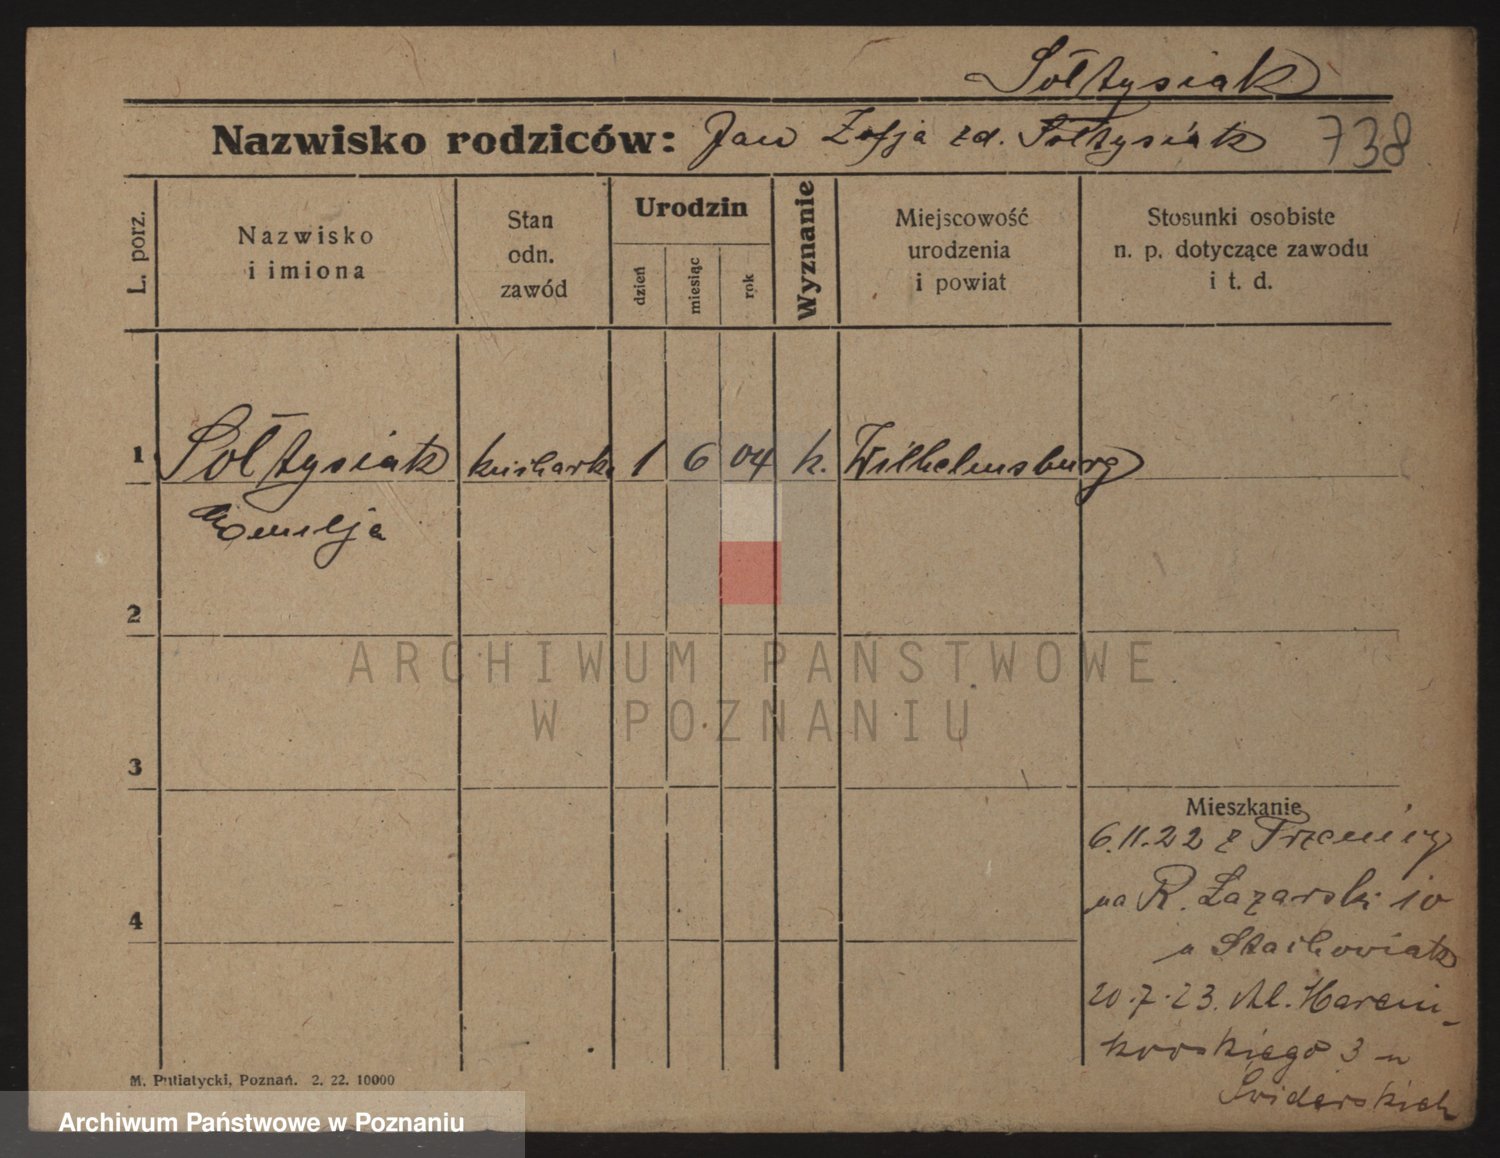 Sołtysiak
Nazwisko rodziców: Jan Zofja zd. Sołtysiak 738
L. porz.
Nazwisko
i imiona
Stan
odn.
zawód
Urodzin
dzień
miesiąc
rok
Wyznanie
Miejscowość
urodzenia
i powiat
Stosunki osobiste
n. p. dotyczące zawodu
i t. d.
1 Sołtysiak kucharka 1 6 04 k. Wilhelmsburg
Emilja
2
ARCHIWUM PAŃSTWOWE
W POZNANIU
3
Mieszkanie
6.11.22 z
na R. Łazarski 10
u Stachowiak
4
20.7.23. Al.
3 u
Świderskich
M. Putiatycki, Poznań. 2. 22. 10000
Archiwum Państwowe w Poznaniu